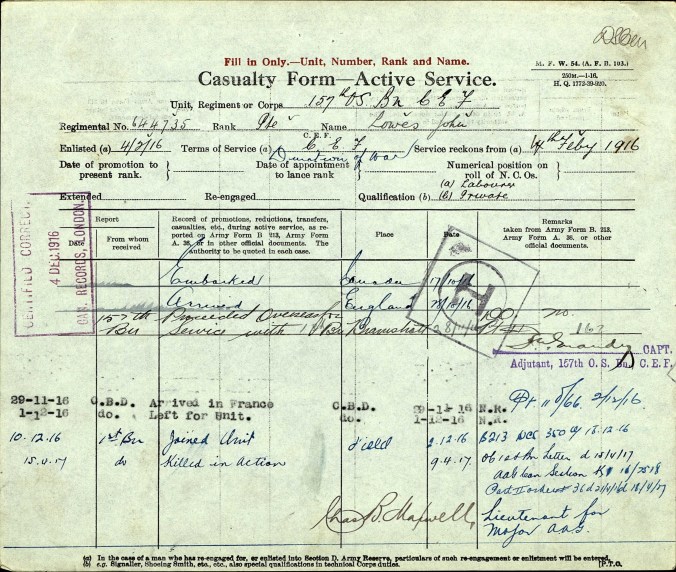 Fill in Only.—Unit, Number, Rank and Name.
M. F. W. 54. (A. F. B. 103.)
Casualty Form—Active Service.
250M.—1-16.
H. Q. 1772-39-920.
Unit, Regiment or Corps 157th O.S. Bn C E F
Regimental No. 644735 Rank Pte Name Lowes John
C. E. F.
Enlisted (a) 4/2/16 Terms of Service (a) C. E. F. Service reckons from (a) 4th Feby 1916
Duration of War
Date of promotion to present rank. Date of appointment to lance rank Numerical position on roll of N. C. Os.
(a) Labourer
Extended Re-engaged Qualification (b) (b) Private
CERTIFIED CORRECT.
4 DEC. 1916
CAN. RECORDS, LONDON.
Report
Date From whom received
Record of promotions, reductions, transfers, casualties, etc., during active service, as reported on Army Form B 213, Army Form A. 36, or in other official documents. The authority to be quoted in each case.
Place
Date
Remarks taken from Army Form B. 213, Army Form A. 36, or other official documents.
Embarked Canada 17/10/16
Arrived England
H
157th Bn Proceeded Overseas for Service with 1st Bn Bramshott 28/11/16
CAPT.
Adjutant, 157th O. S. Bn. C. E. F.
29-11-16 C.B.D. Arrived in France C.B.D. 29-11-16 N.R. Pt 11 2/12/16
1-12-16 do. Left for Unit. do. 1-12-16 N.R.
10.12.16 1st Bn Joined Unit Field 2.12.16 B213
15.4.17 do Killed in Action 9.4.17. Letter d 15/4/17
Chas B. Maxwell,
Lieutenant for
Major AAG
(a) In the case of a man who has re-engaged for, or enlisted into Section D. Army Reserve, particulars of such re-engagement or enlistment will be entered.
(b) e.g. Signaller, Shoeing Smith, etc., etc., also special qualifications in technical Corps duties.
[P.T.O.